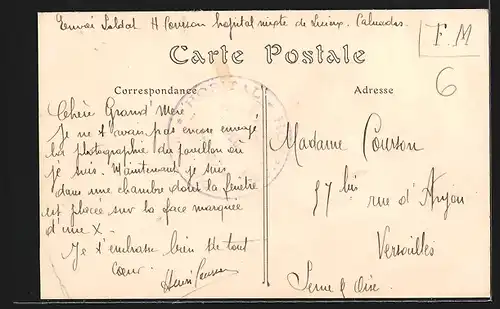 Envoi Soldat H Courson hopital mixte de Lisieux. Calvados
F. M
Carte Postale
6
Correspondance
Adresse
Chère Grand'Mère
Je ne t'avais pas encore envoyé
la photographie du pavillon où
je suis. Maintenant je suis
dans une chambre dont la fenêtre
est placée sur la face marquée
d'une X.
Je t'embrasse bien de tout
cœur.
Henri Courson
Madame Courson
57 bis rue d'Anjou
Versailles
Seine & Oise